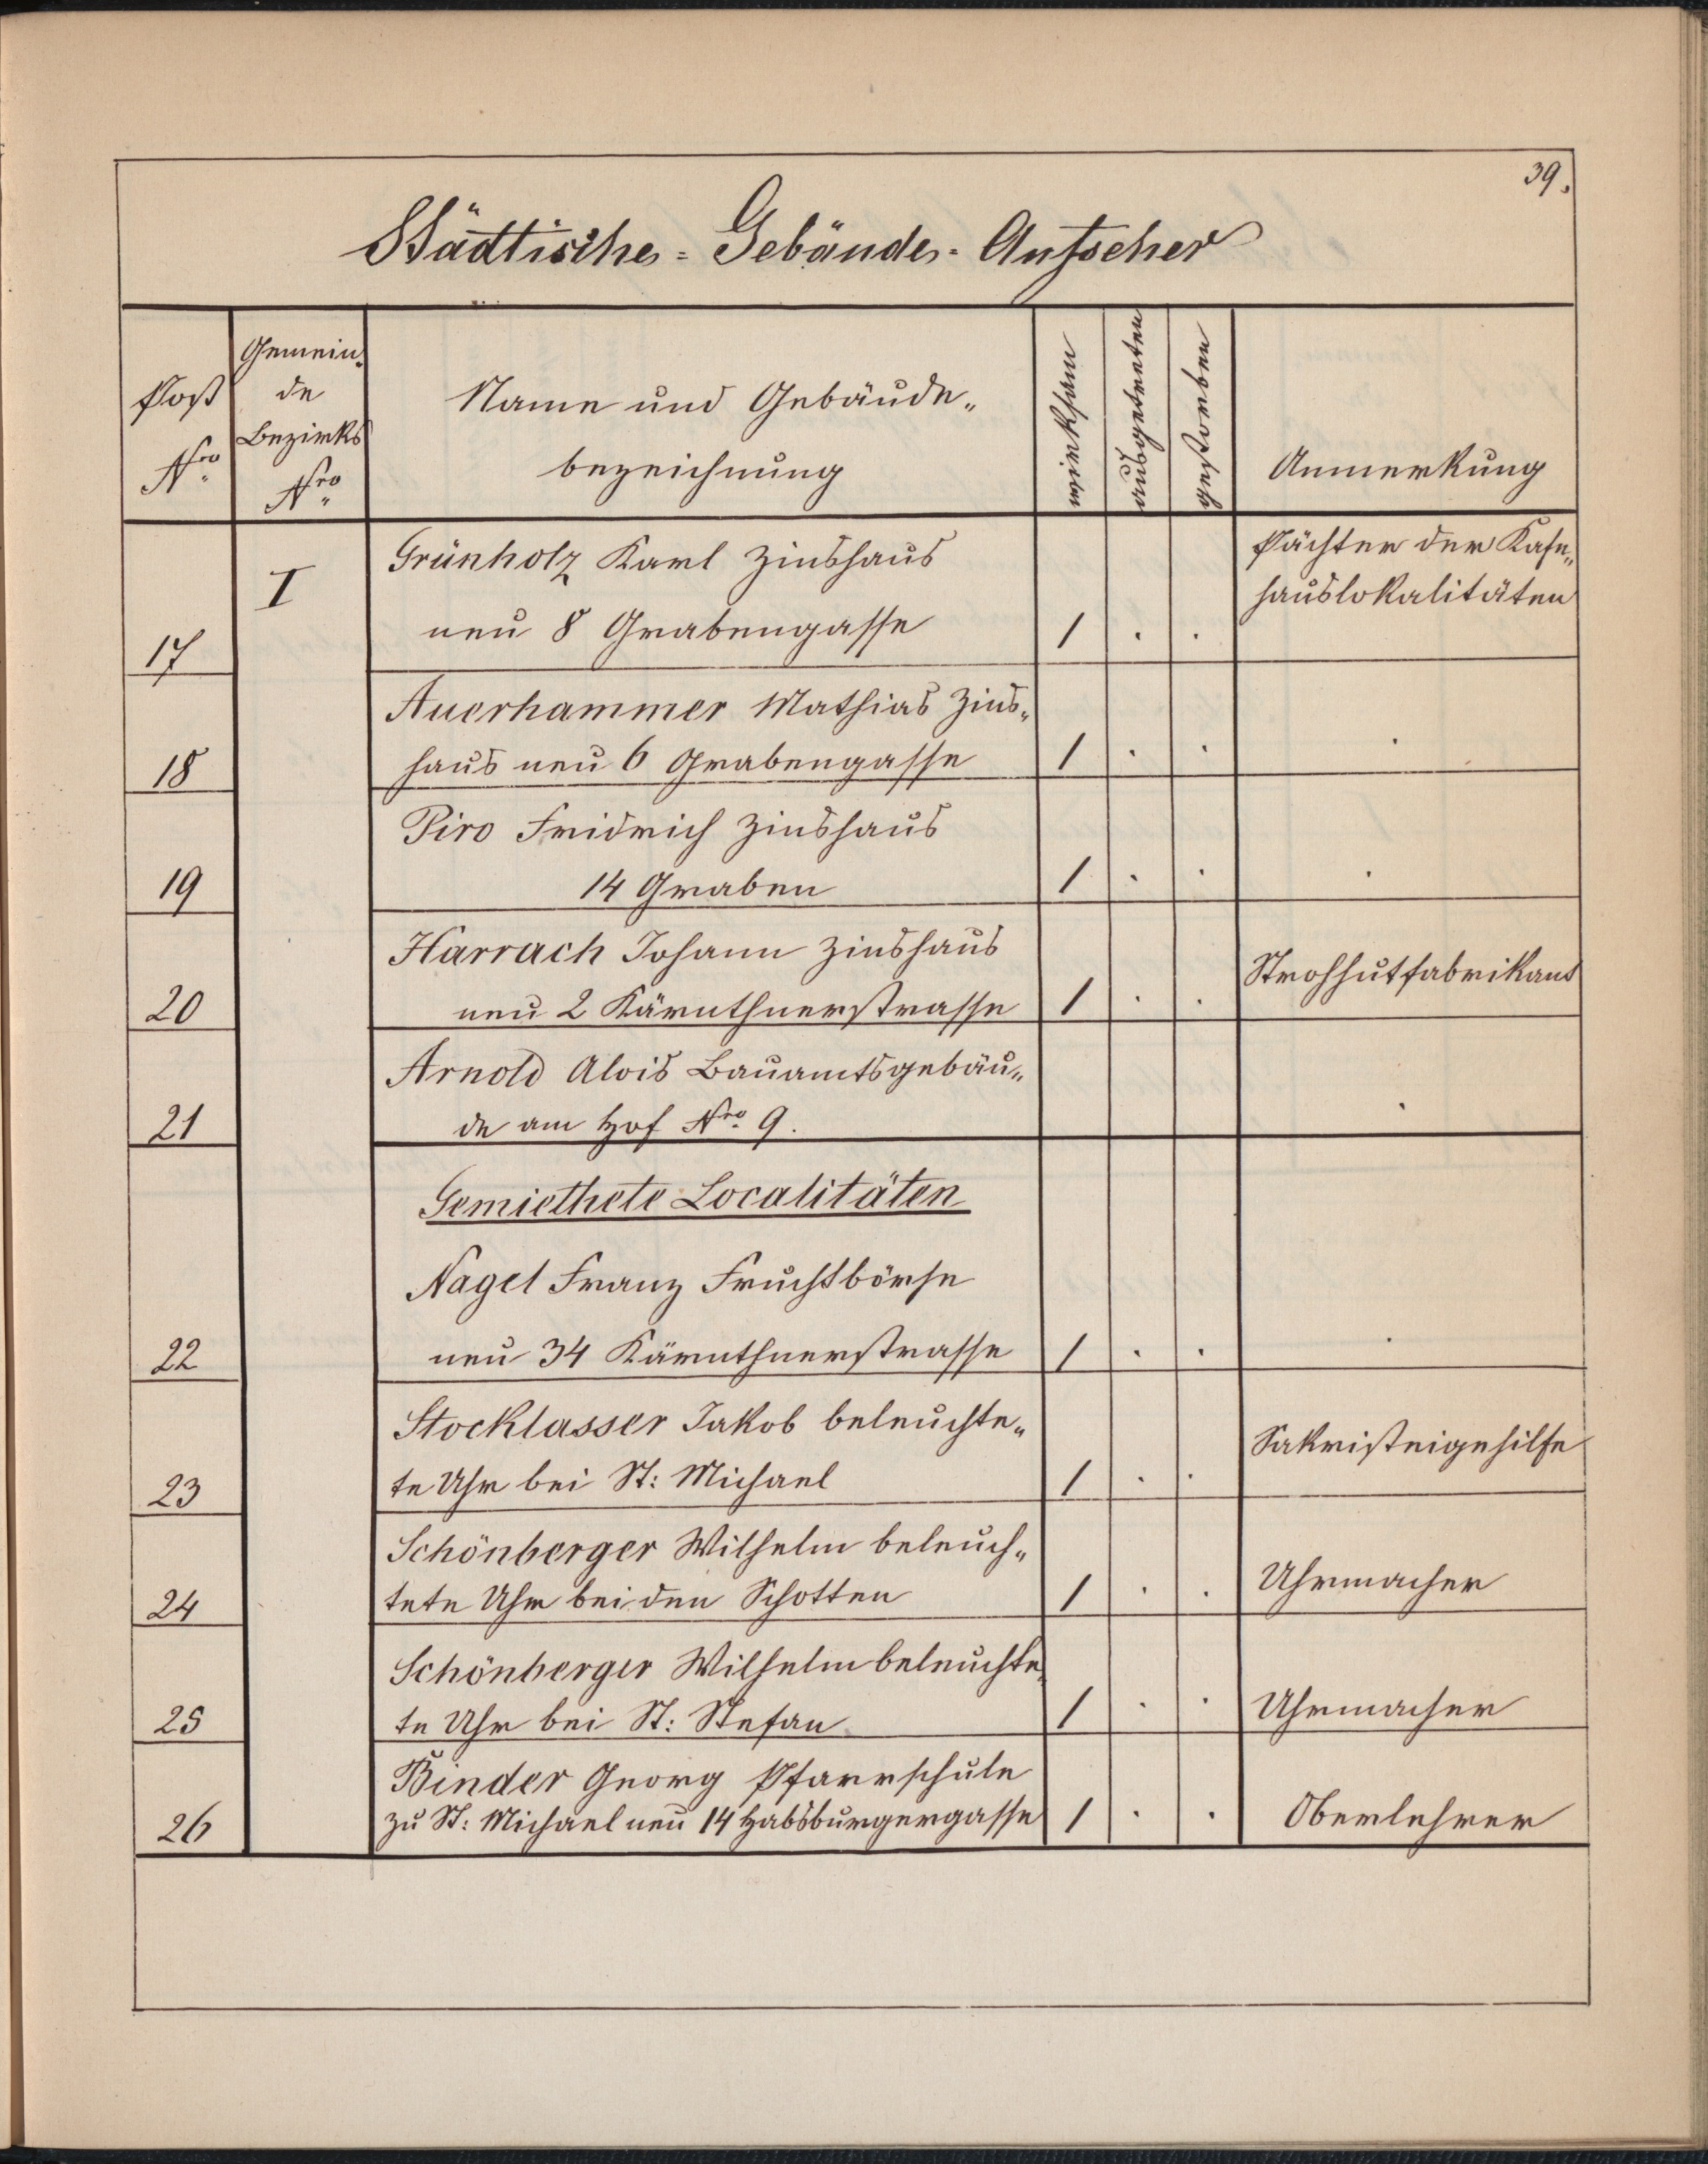 39.
Städtische-Gebäude-Aufseher
Post Nro
Gemein-
de
Bezirks
Nro
Name und Gebäude-
bezeichnung
wirksam
ausgetreten
gestorben
Anmerkung
I
Grünholz Karl Zinshaus
Pächter der Kafe-
hauslokalitäten
17 neu 8 Grabengasse 1 . .
Auerhammer Mathias Zins-
18 haus neu 6 Grabengasse 1 . . .
Piro Fridrich Zinshaus
19 14 Graben 1 . . .
Harrach Johann Zinshaus
Strohhutfabrikant
20 neu 2 Kärnthnerstrasse 1 . .
Arnold Alois Bauamtsgebäu-
21 de am Hof Nro 9. .
Gemiethete Localitäten
Nagel Franz Fruchtbörse
22 neu 34 Kärnthnerstrasse 1 . . .
Stocklasser Jakob beleuchte-
Sakristeigehilfe
23 te Uhr bei St: Michael 1 . .
Schönberger Wilhelm beleuch-
24 tete Uhr bei den Schotten 1 . . Uhrmacher
Schönberger Wilhelm beleuchte-
25 te Uhr bei St: Stefan 1 . . Uhrmacher
Binder Georg Pfarrschule
26 zu St: Michael neu 14 Habsburgergasse 1 . . Oberlehrer